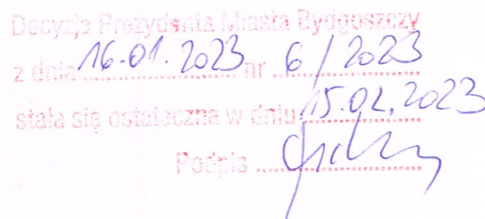 Decyzja Prezydenta Miasta Bydgoszczy
z dnia 16.01.2023 nr 6/2023
stała się ostateczna w dniu 15.02.2023
Podpis